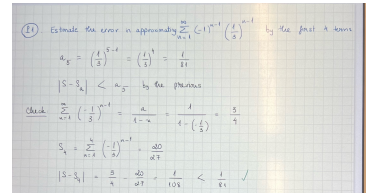 E1 Estimate the error in approximating ∑_{n=1}^{∞} (-1)^{n-1} (1/3)^{n-1} by the first 4 terms
a_5 = (1/3)^{5-1} = (1/3)^4 = 1/81
|S-S_4| < a_5 by the previous
Check: ∑_{n=1}^{∞} (-1/3)^{n-1} = a/(1-r) = 1/(1-(-1/3)) = 3/4
S_4 = ∑_{n=1}^{4} (-1/3)^{n-1} = 20/27
|S-S_4| = 3/4 - 20/27 = 1/108 < 1/81 ✓